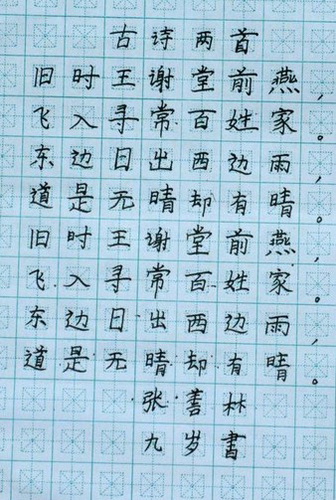 古诗两首
旧时王谢堂前燕，
飞入寻常百姓家。
东边日出西边雨，
道是无晴却有晴。
旧时王谢堂前燕，
飞入寻常百姓家。
东边日出西边雨，
道是无晴却有晴。
张善林
九岁书